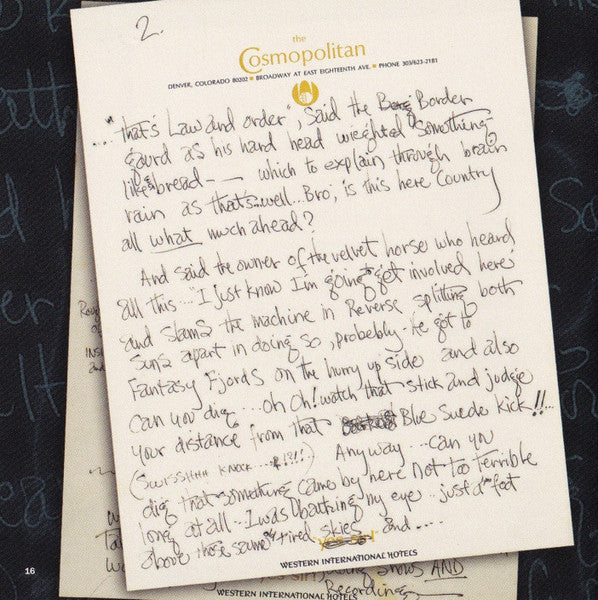 2.
the
Cosmopolitan
DENVER, COLORADO 80202 • BROADWAY AT EAST EIGHTEENTH AVE. • PHONE 303/623-2181
..."that's Law and order", said the Border
gaurd as his hard head wieghted something
like bread -- which to explain through brain
rain as that's..well...Bro; is this here Country
all what much ahead?
And said the owner of the velvet horse who heard
all this..."I just know I'm going get involved here"
and slams the machine in Reverse splitting both
suns apart in doing so, probebly - he got to
Fantasy Fjords on the hurry up side and also
Can you dig...oh Oh! watch that stick and judge
your distance from that Blue Suede kick!!...
(SWISSHHH KNOCK....!?!!) Anyway...can you
dig that something came by here not too terrible
long at all..I was bathing my eye..just a foot
above those same tired skies and....
WESTERN INTERNATIONAL HOTELS
16
shows AND
Recordings
WESTERN INTERNATIONAL HOTELS